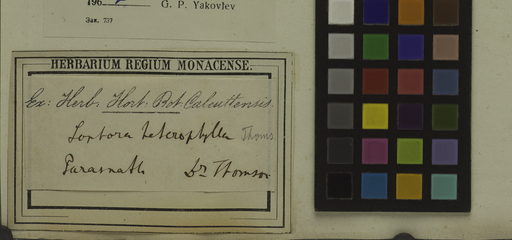 196
G. P. Yakovlev
Зак. 737
HERBARIUM REGIUM MONACENSE.
Ex: Herb. Hort. Bot. Calcuttensis.
heterophylla Thoms
Parasnath Dr. Thomson